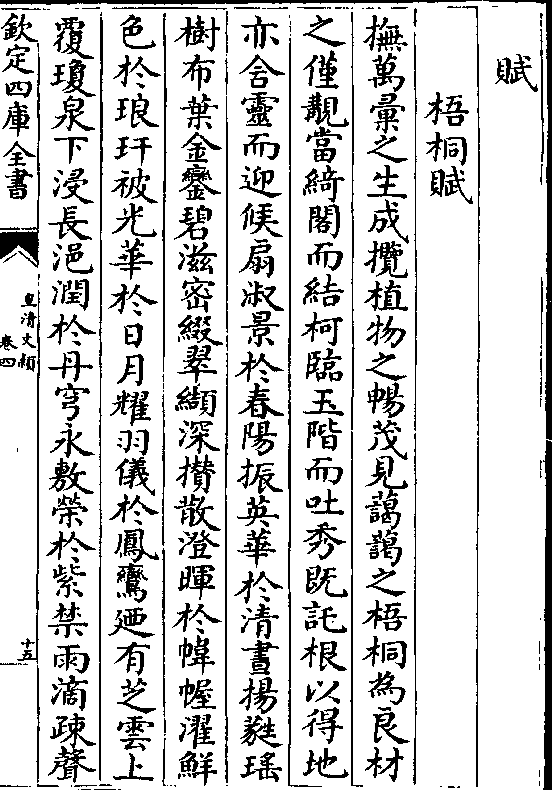 賦
梧桐賦
撫萬彙之生成攬植物之暢茂見藹藹之梧桐為良材
之僅覩當綺閣而結柯臨玉階而吐秀既託根以得地
亦含靈而迎候扇淑景於春陽振英華於清晝揚蕤瑶
樹布葉金鑾碧滋密綴翠纈深攅散澄暉於幃幄濯鮮
色於琅玕被光華於日月耀羽儀於鳳鸞廼有芝雲上
覆瓊泉下浸長浥潤於丹穹永敷榮於紫禁雨滴疎聲
欽定四庫全書
皇清文穎
卷四
十五